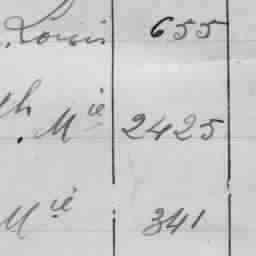 Louis 655
th
. Mie 2425
Mie . 341